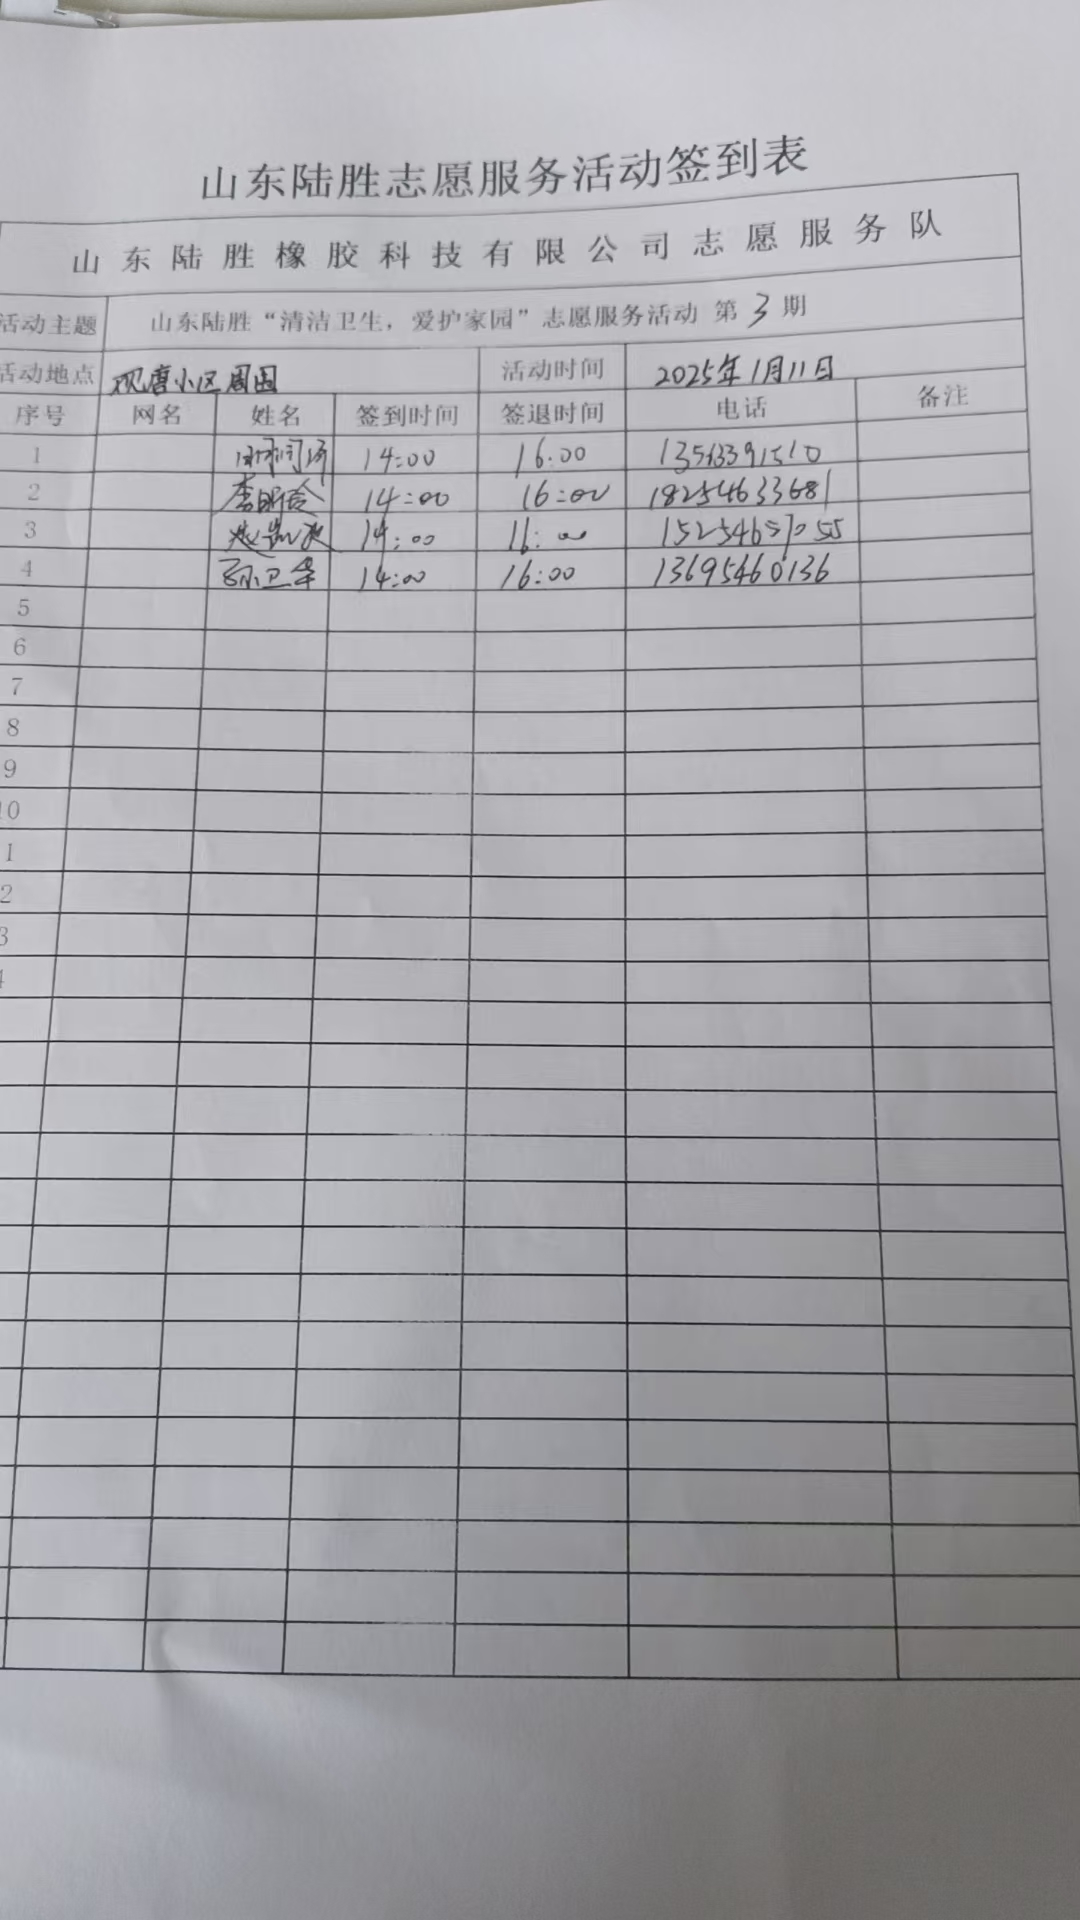 山东陆胜志愿服务活动签到表
山东陆胜橡胶科技有限公司志愿服务队
活动主题 山东陆胜“清洁卫生，爱护家园”志愿服务活动 第3期
活动地点 观唐小区周围 活动时间 2025年1月11日
序号 网名 姓名 签到时间 签退时间 电话 备注
1 14:00 16:00 13563391510
2 李明玲 14:00 16:00 18254633681
3 14:00 16:00 15254657055
4 孙卫华 14:00 16:00 13695460136
5
6
7
8
9
10
1
2
3
4